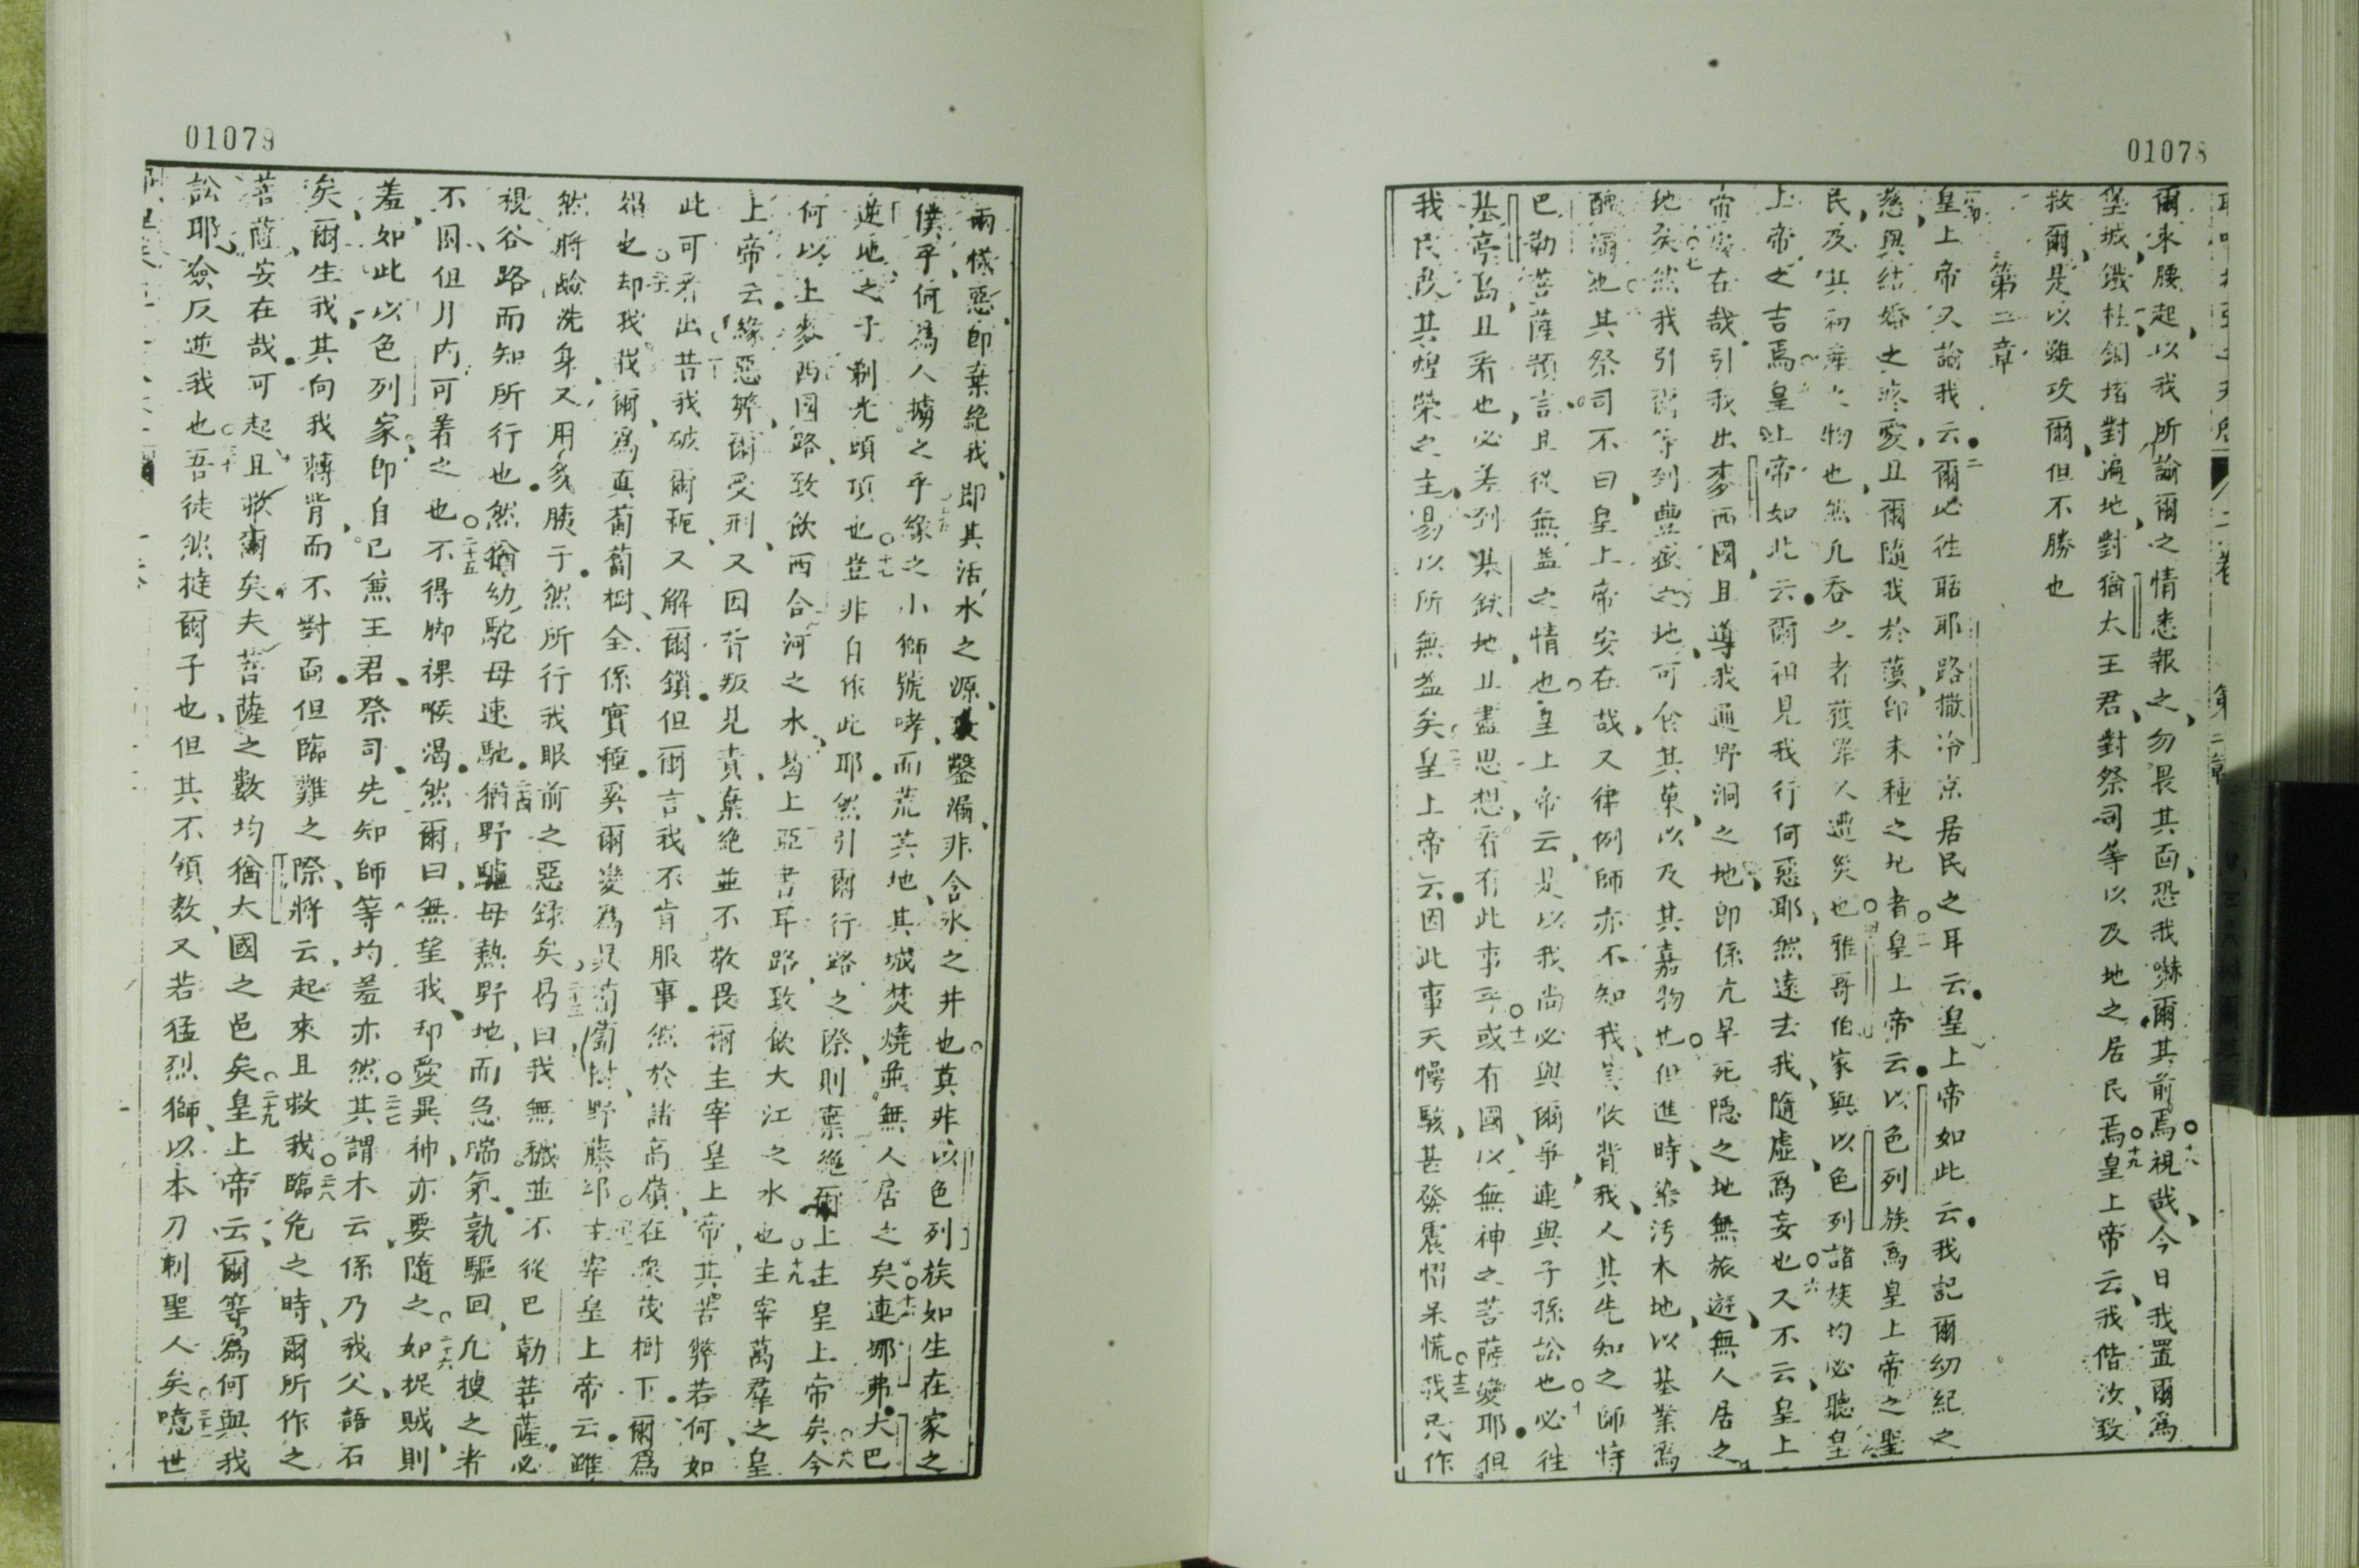 01078
爾束腰起以我所諭爾之情悉報之勿畏其面恐我嚇爾其前焉十八視哉今日我置爾為
堡城鐵柱銅墻對遍地對猶太王君對祭司等以及地之居民焉十九皇上帝云我偕汝致
救爾是以雖攻爾但不勝也
第二章
皇上帝又諭我云二爾必往耶路撒冷京居民之耳云皇上帝如此云我記爾幼紀之
慈與結婚之疼愛且爾隨我於漠即未種之地者皇上帝云以色列族為皇上帝之聖
民及其初產之物也然凡吞之者獲罪人遭災也四雅哥伯家與以色列諸族均必聽皇
上帝之言焉皇上帝如此云爾祖見我行何惡耶然遠去我隨虛為妄也六又不云皇上
帝安在哉引我出麥西國且導我通野洞之地即係亢旱死隱之地無旅遊無人居之
地矣七然我引爾等到豐盛之地可食其菓以及其嘉物也但進時染汚本地以基業為
醜滛也其祭司不曰皇上帝安在哉又律例師亦不知我其牧背我人其先知之師恃
巴勒菩薩預言且從無益之情也皇上帝云是以我尚必與爾爭連與子孫訟也十必往
基亭島且看也必差到其鉄地且盡思想看有此事乎十一或有國以無神之菩薩變耶但
我民改其煌榮之主易以所無益矣皇上帝云因此事天愕駭甚發震慴呆慌十三我民作
01079
兩樣惡即棄絶我即其活水之源又鑿漏非含水之井也莫非以色列族如生在家之
僕乎何為人擄之乎緣之小獅號哮而荒其地其城焚燒並無人居之矣十六連挪弗大巴
逆地之子剃光頭頂也十七豈非自作此耶然引爾行路之際則棄絶爾上主皇上帝矣今
何以上麥西國路致飲西合河之水曷上亞書耳路致飲大江之水也十九主宰萬羣之皇
上帝云緣惡弊爾受刑又因背叛見責棄絶並不敬畏爾主宰皇上帝其苦弊若何如
此可看出昔我破爾軛又解爾鎖但爾言我不肯服事然於諸高嶺在衆茂樹下爾為
猖也却我栽爾為真葡萄樹全係實種奚爾變為異葡萄樹野藤耶主宰皇上帝云雖
然將鹼洗身又用多胰子然所行我眼前之惡錄矣二十三曷曰我無穢並不從巴勒菩薩必
視谷路而知所行也然猶幼駝母速馳二十四猶野驢母熱野地而急喘氣孰驅回凡搜之者
不困但月內可著之也二十五不得脚祼喉渴然爾曰無望我却愛異神亦要隨之二十六如捉賊則
羞如此以色列家即自己兼王君祭司先知師等均羞亦然二十七其謂木云係乃我父語石
矣爾生我其向我轉背而不對面但臨難之際將云起來且救我二十八臨危之時爾所作之
菩薩安在哉可起且救爾矣夫菩薩之數均猶大國之邑矣二十九皇上帝云爾等為何與我
訟耶僉反逆我也三十吾徒然撻爾子也但其不領教又若猛烈獅以本刀刺聖人矣三十一噫世